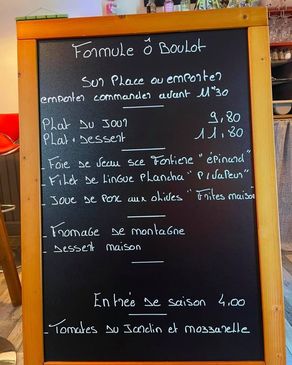 Formule ô Boulot
Sur Place ou emporter
emporter commander avant 11h30
Plat du Jour 9,80
Plat + Dessert 11,80
- Foie de veau sce Forestière "épinard"
- Filet de Lingue Plancha "P. Vapeur"
- Joue de Porc aux olives "Frites maison
- Fromage de montagne
- Dessert maison
Entrée de saison 4,00
- Tomates du Jardin et mozzarelle